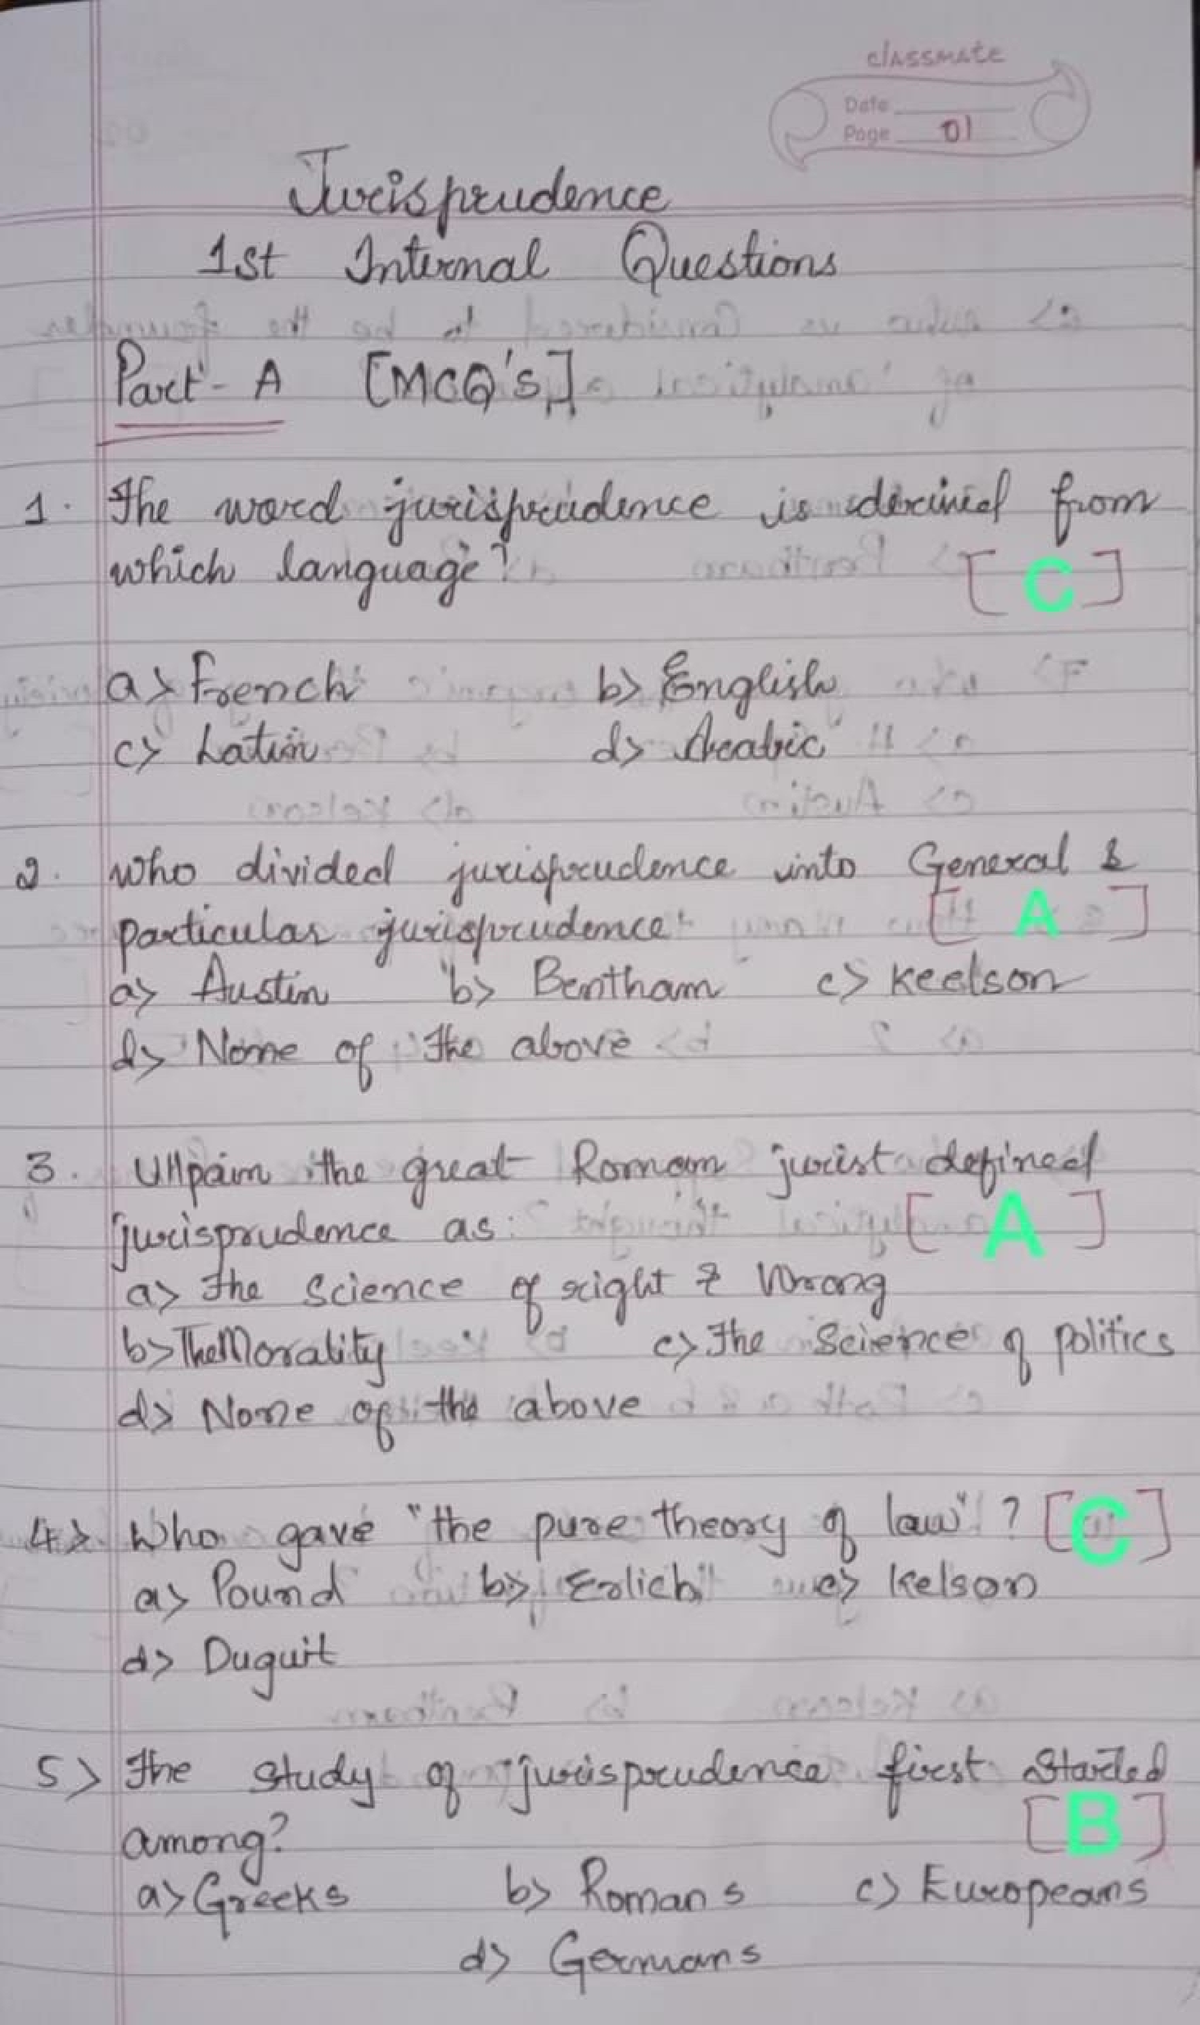 classmate
Date
Page 01
Jurisprudence
1st Internal Questions
Part - A [MCQ's]
1. The word jurisprudence is derived from
which language? [C]
a> French b> English
c> Latin d> Arabic
2. Who divided jurisprudence into General &
particular jurisprudence [A]
a> Austin b> Bentham c> Keelson
d> None of the above
3. Ullpain the great Roman jurist defined
jurisprudence as: [A]
a> The Science of right & Wrong
b> The Morality c> The Science of politics
d> None of the above
4> Who gave "the pure theory of law"? [C]
a> Pound b> Erlich c> Kelson
d> Duguit
5> The study of jurisprudence first started
among? [B]
a> Greeks b> Romans c> Europeans
d> Germans